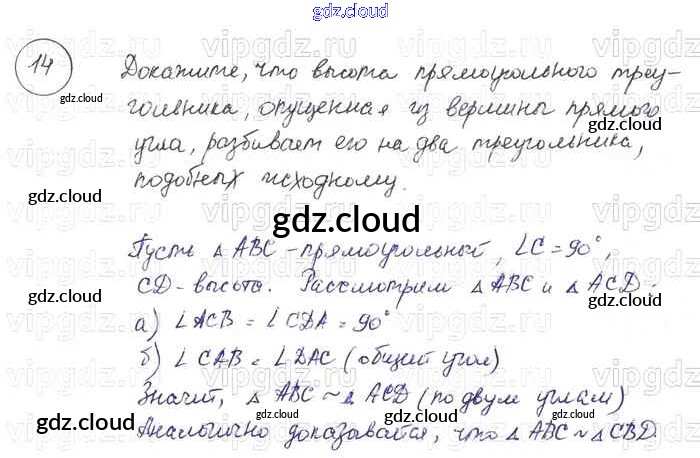 gdz.cloud
14
Докажите, что высота прямоугольного треу-
гольника, опущенная из вершины прямого
угла, разбивает его на два треугольника,
подобных исходному.
gdz.cloud
Пусть △ ABC - прямоугольный, ∠C = 90°,
CD - высота. Рассмотрим △ ABC и △ ACD.
а) ∠ACB = ∠CDA = 90°
б) ∠CAB = ∠DAC (общий угол)
Значит, △ ABC ~ △ ACD (по двум углам)
Аналогично доказывается, что △ ABC ~ △ CBD.
gdz.cloud
gdz.cloud
gdz.cloud
gdz.cloud
gdz.cloud
gdz.cloud
gdz.cloud
gdz.cloud
gdz.cloud
vipgdz.ru